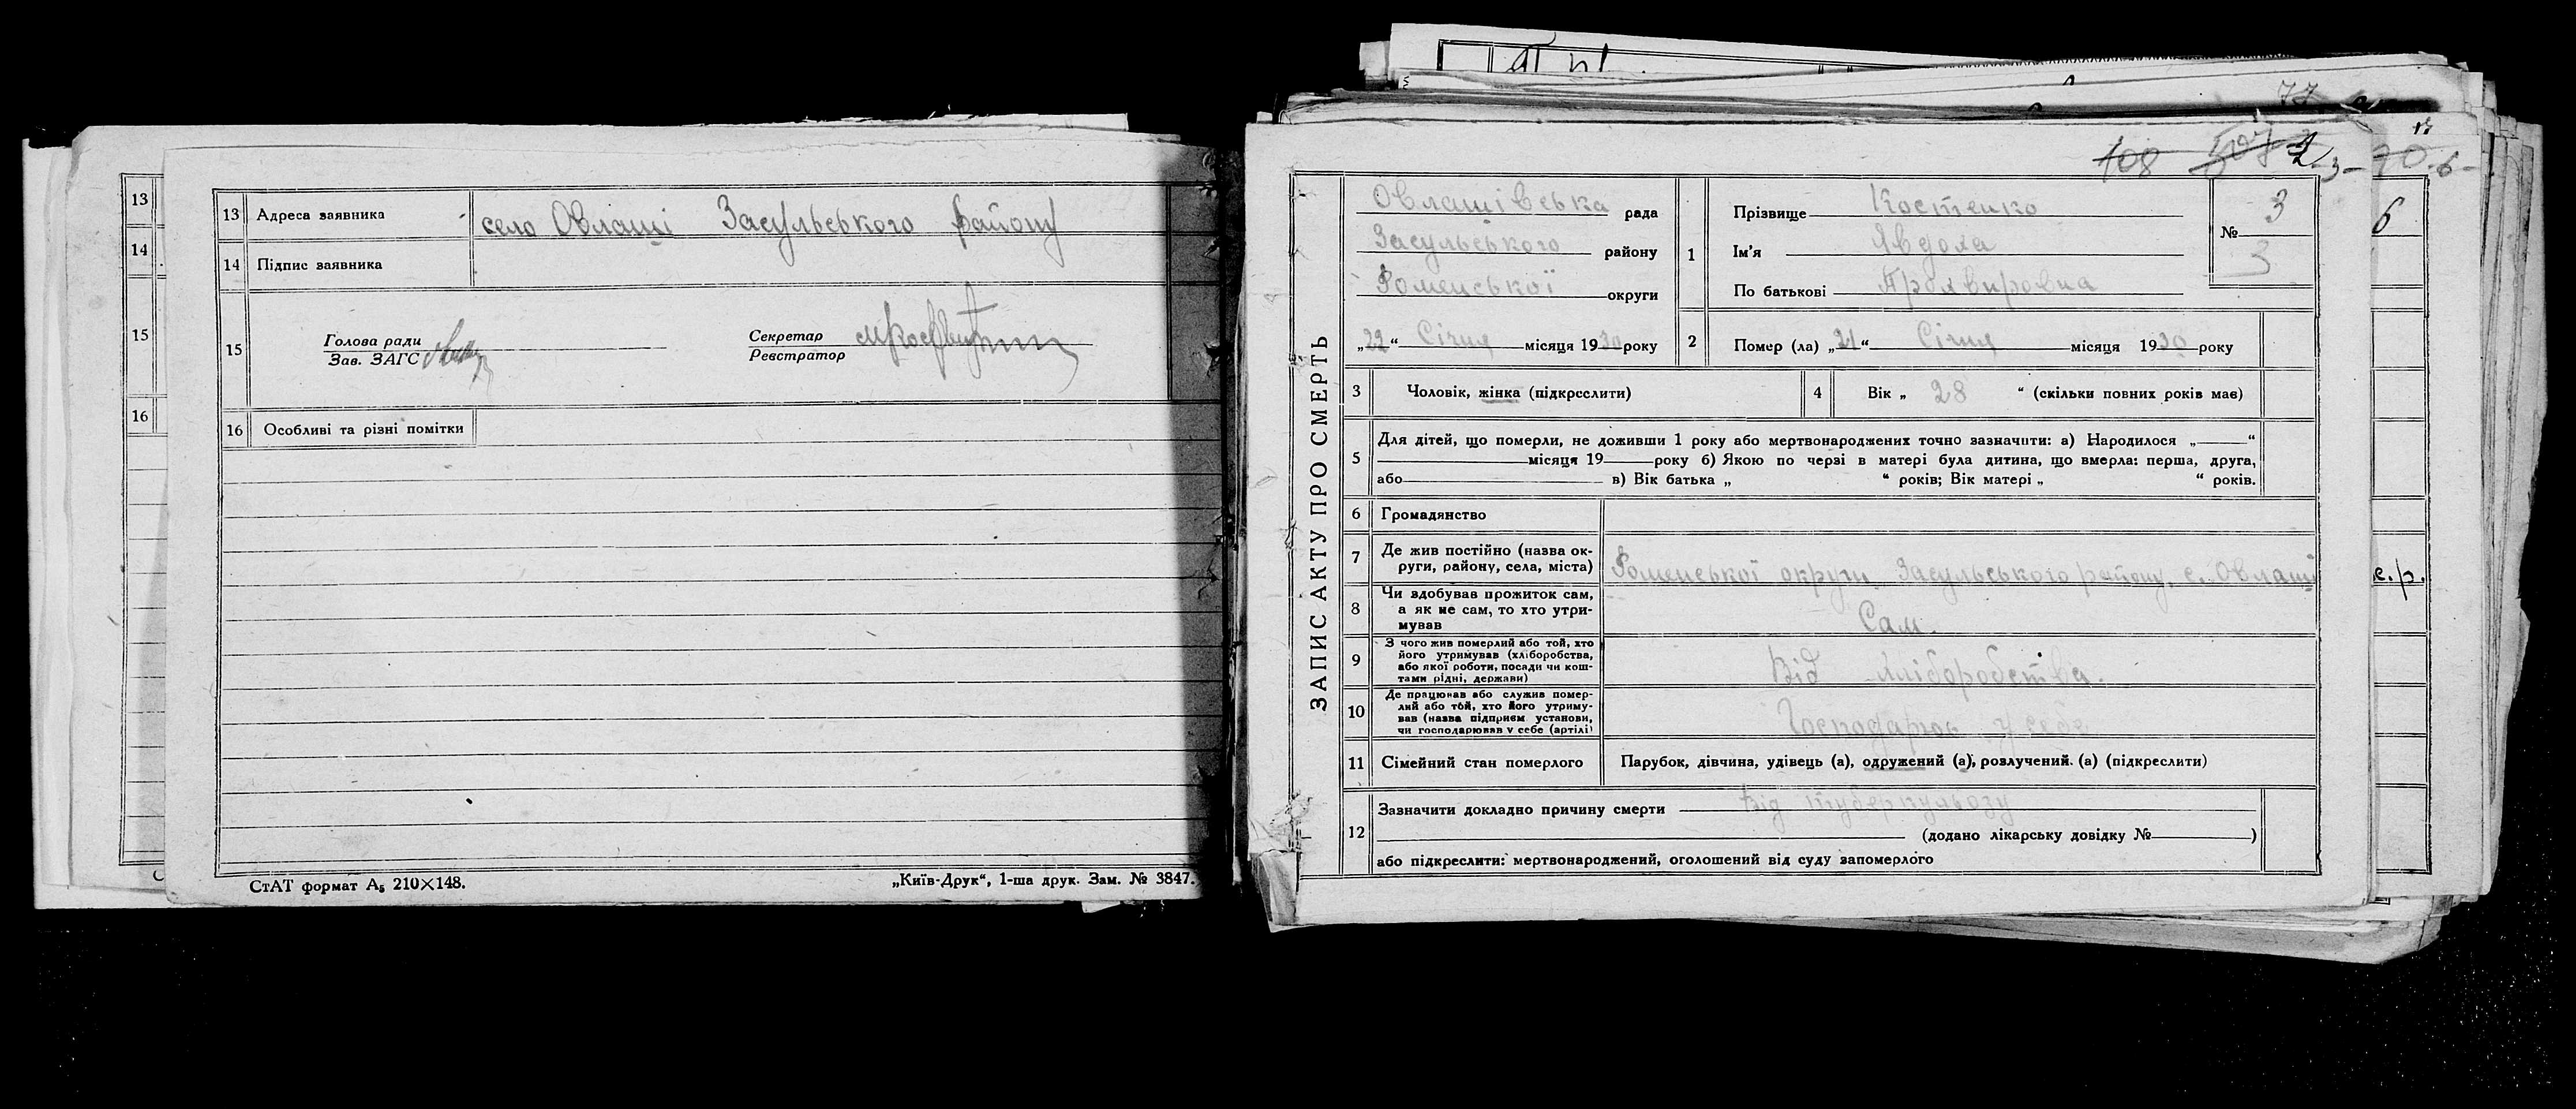 13 Адреса заявника село Овлаші Засульського району
14 Підпис заявника
15 Голова ради
Зав. ЗАГС
Секретар
Реєстратор
16 Особливі та різні помітки
СтАТ формат А₅ 210×148.
„Київ-Друк“, 1-ша друк. Зам. № 3847.
13
14
15
16
77
108 507
6
е.р.
ЗАПИС АКТУ ПРО СМЕРТЬ
Овлашівська рада
Засульського району
Роменської округи
„22“ Січня місяця 1930 року
1 Прізвище Костенко
Ім'я Явдоха
По батькові
№ 3
3
2 Помер (ла) „21“ Січня місяця 1930 року
3 Чоловік, жінка (підкреслити)
4 Вік „ 28 “ (скільки повних років має)
5 Для дітей, що померли, не доживши 1 року або мертвонароджених точно зазначити: а) Народилося „ “
місяця 19 року б) Якою по черзі в матері була дитина, що вмерла: перша, друга,
або в) Вік батька „ “ років; Вік матері „ “ років.
6 Громадянство
7 Де жив постійно (назва ок-
руги, району, села, міста) Роменської округи Засульського району, с. Овлаші
8 Чи здобував прожиток сам,
а як не сам, то хто утри-
мував Сам.
9 З чого жив померлий або той, хто
його утримував (хліборобства,
або якої роботи, посади чи кош-
тами рідні, держави) Від хліборобства.
10 Де працював або служив помер-
лий або той, хто його утриму-
вав (назва підприєм установи,
чи господарював у себе (артілі) Господарює у себе
11 Сімейний стан померлого Парубок, дівчина, удівець (а), одружений (а), розлучений. (а) (підкреслити)
12 Зазначити докладно причину смерти Від туберкульозу
(додано лікарську довідку № )
або підкреслити: мертвонароджений, оголошений від суду запомерлого